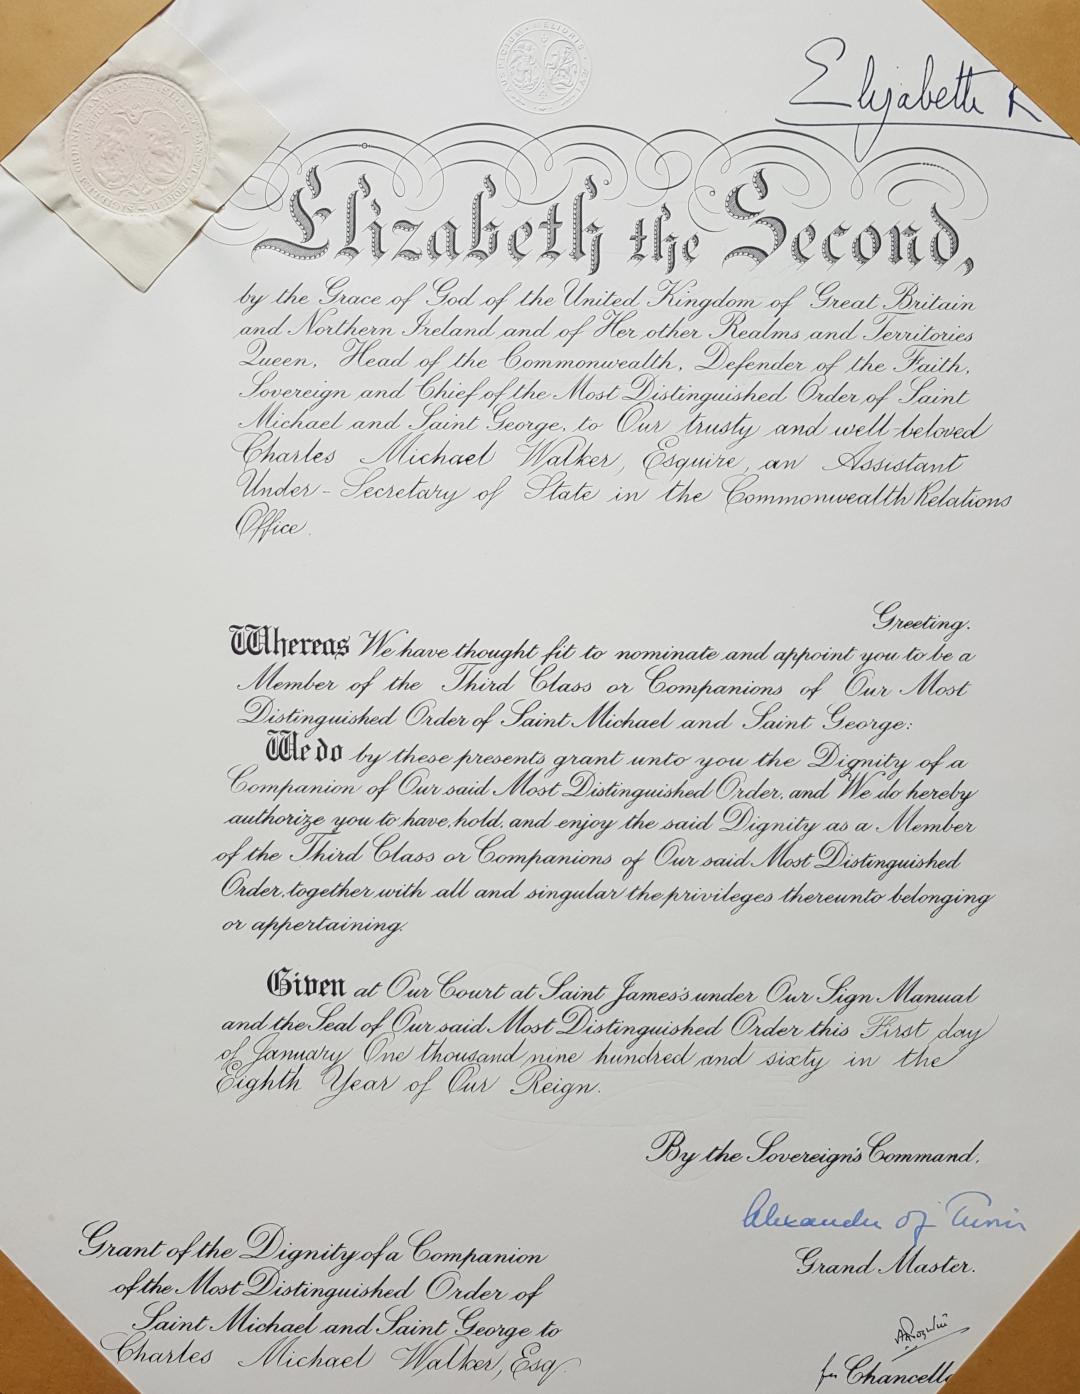 Elizabeth R
Elizabeth the Second,
by the Grace of God of the United Kingdom of Great Britain
and Northern Ireland and of Her other Realms and Territories
Queen, Head of the Commonwealth, Defender of the Faith,
Sovereign and Chief of the Most Distinguished Order of Saint
Michael and Saint George, to Our trusty and well-beloved
Charles Michael Walker, Esquire, an Assistant
Under-Secretary of State in the Commonwealth Relations
Office.
Greeting.
Whereas We have thought fit to nominate and appoint you to be a
Member of the Third Class or Companions of Our Most
Distinguished Order of Saint Michael and Saint George:
We do by these presents grant unto you the Dignity of a
Companion of Our said Most Distinguished Order, and We do hereby
authorize you to have, hold, and enjoy the said Dignity as a Member
of the Third Class or Companions of Our said Most Distinguished
Order, together with all and singular the privileges thereunto belonging
or appertaining.
Given at Our Court at Saint James's under Our Sign Manual
and the Seal of Our said Most Distinguished Order this First day
of January One thousand nine hundred and sixty in the
Eighth Year of Our Reign.
By the Sovereign's Command,
Alexander of Tunis
Grand Master.
Grant of the Dignity of a Companion
of the Most Distinguished Order of
Saint Michael and Saint George to
Charles Michael Walker, Esq.
for Chancello